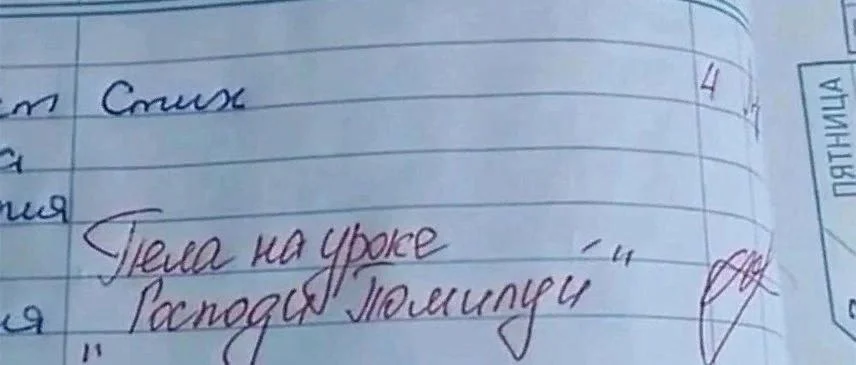 Стих
4
Пела на уроке
"Господи Помилуй"
ПЯТНИЦА